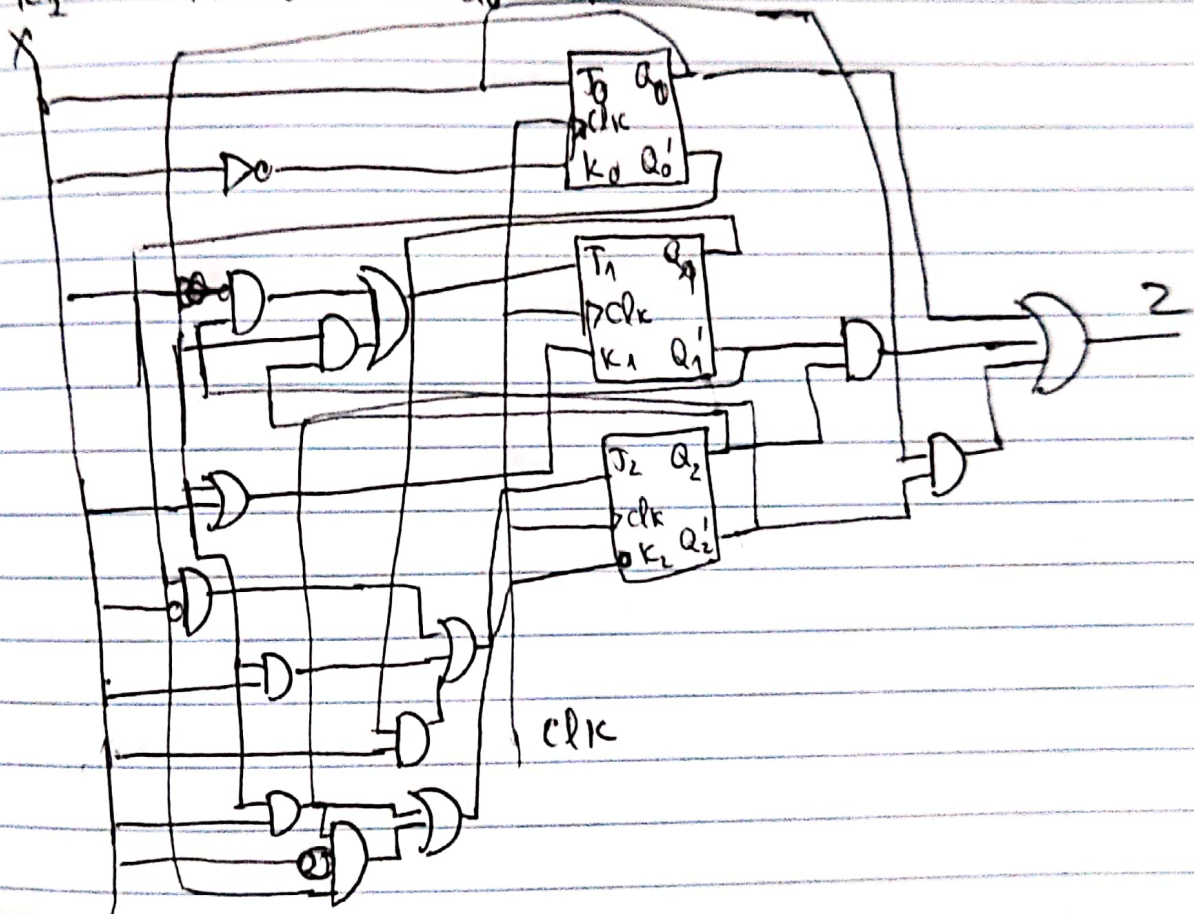 X
J0 Q0
Clk
K0 Q0'
J1 Q1
Clk
K1 Q1'
Z
J2 Q2
Clk
K2 Q2'
Clk